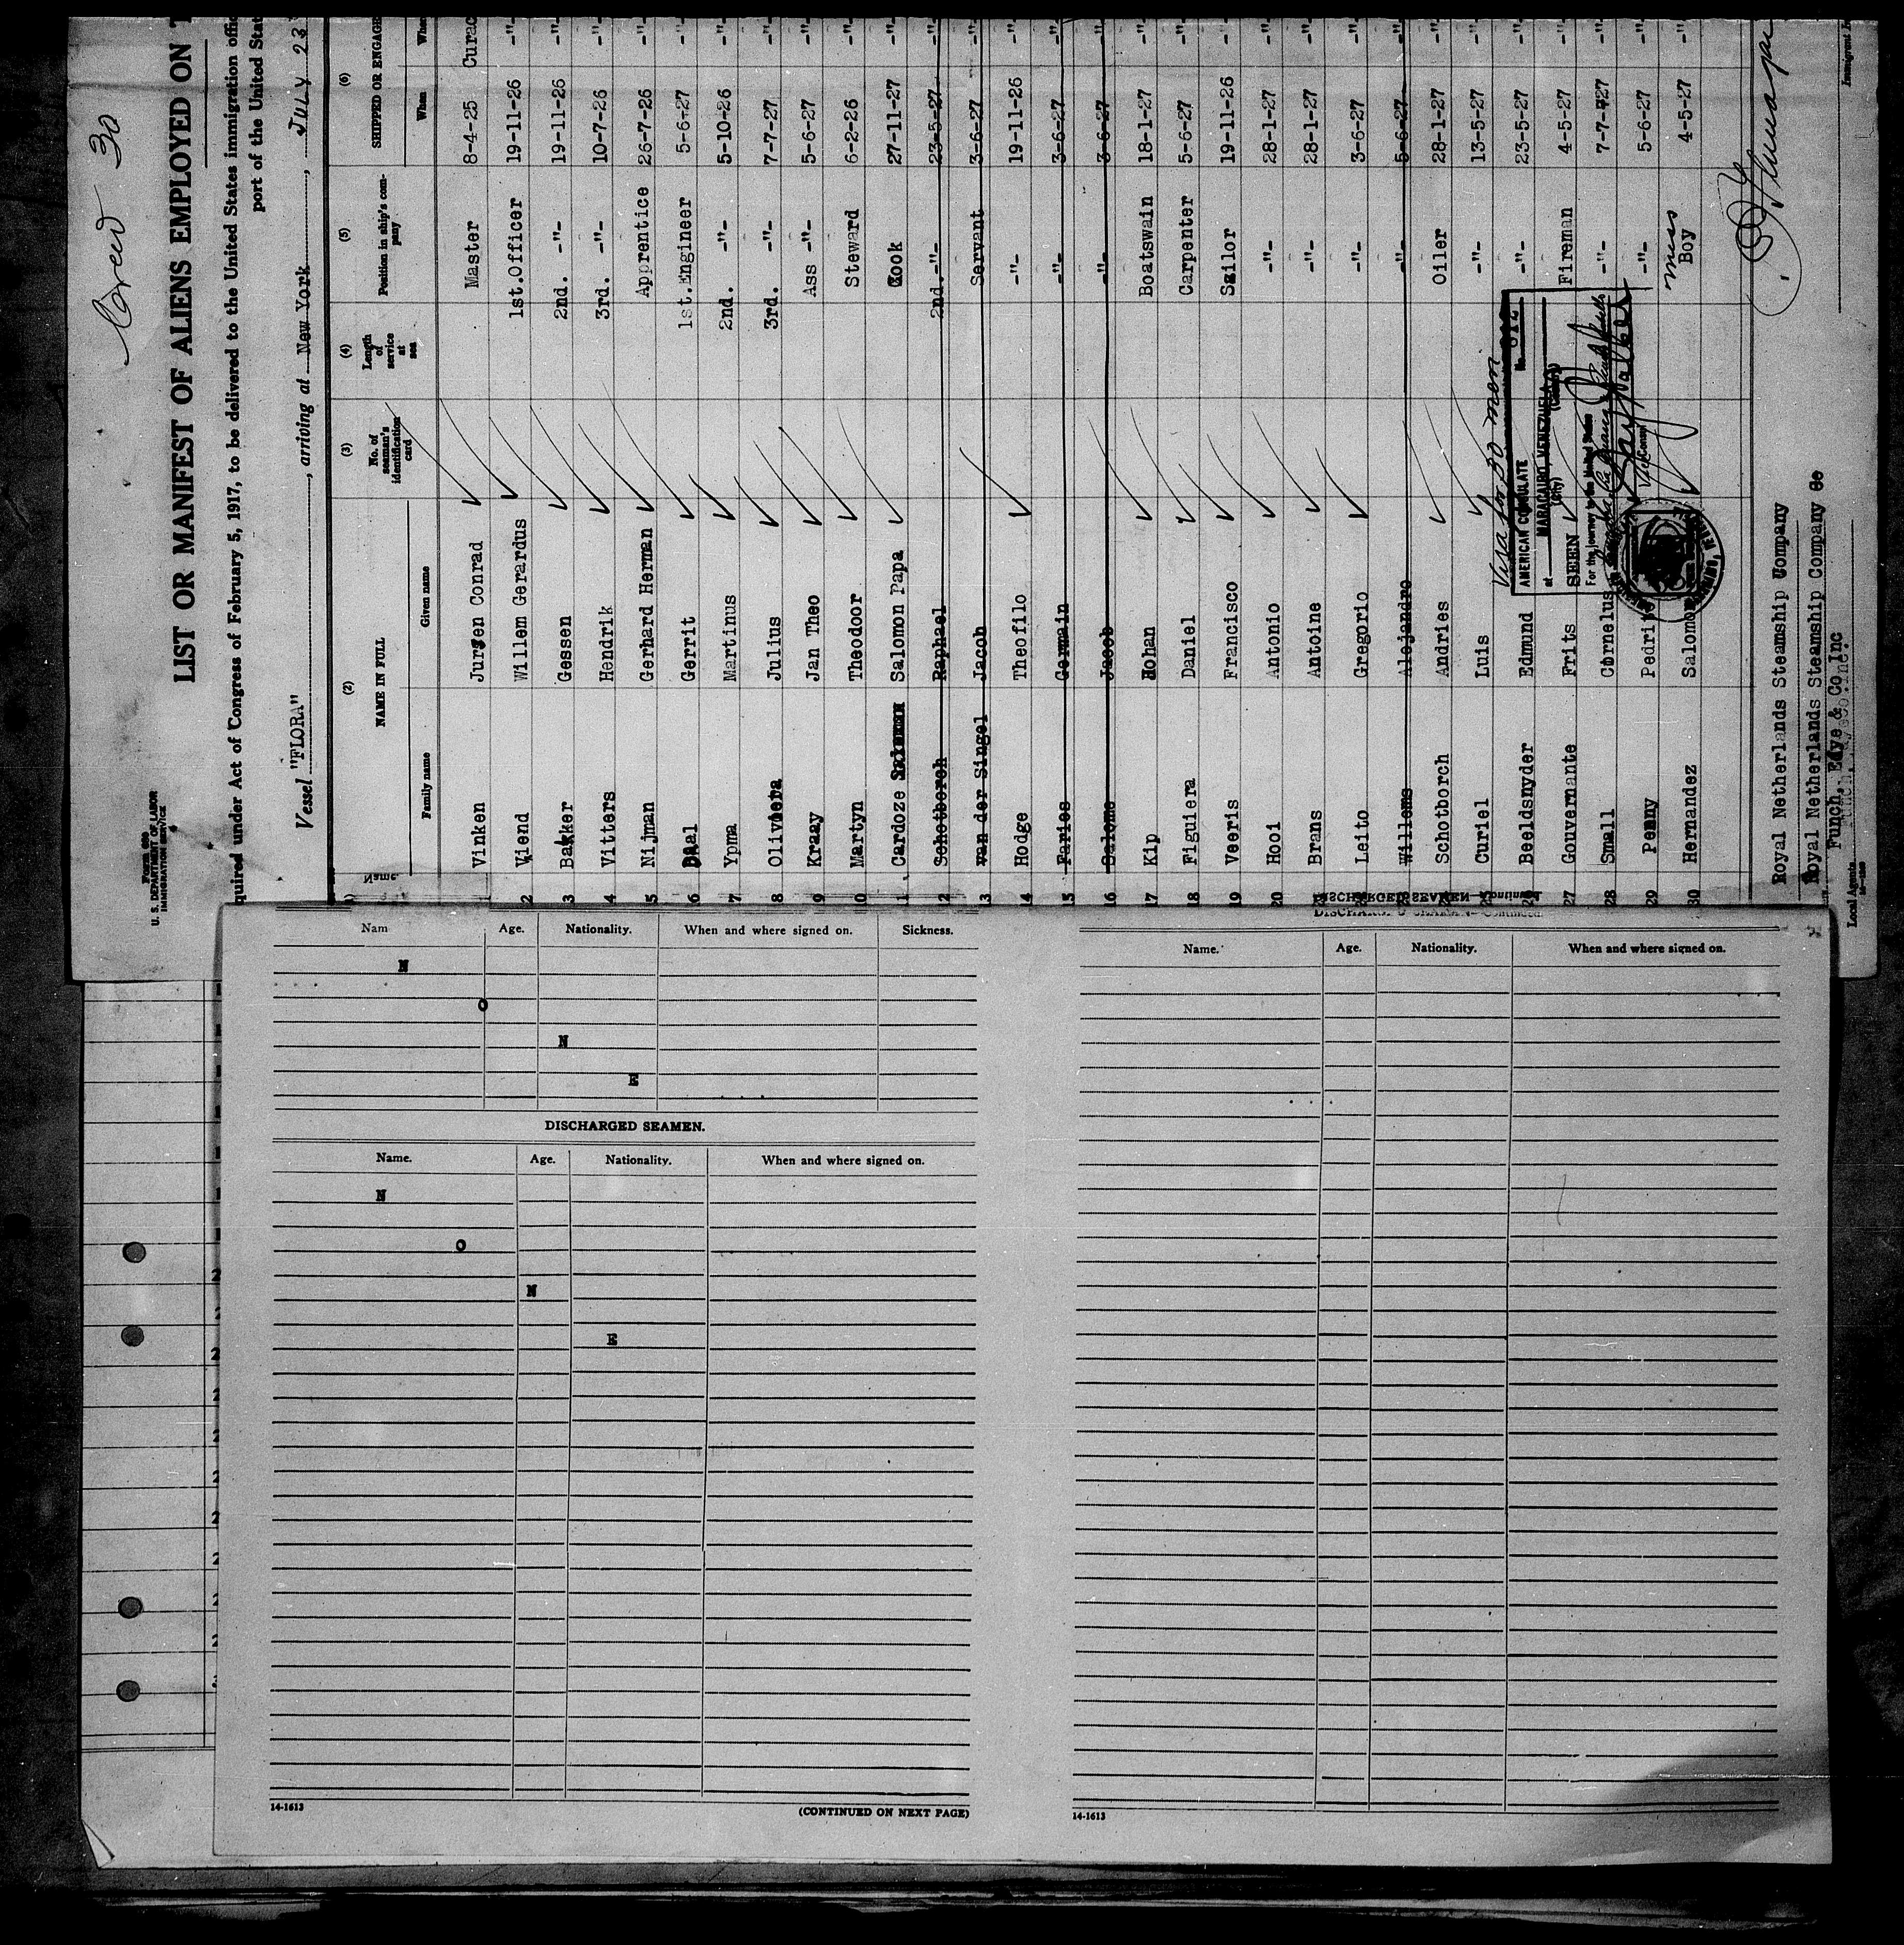 Crew 30
Form 689
U. S. DEPARTMENT OF LABOR
IMMIGRATION SERVICE
LIST OR MANIFEST OF ALIENS EMPLOYED ON T
quired under Act of Congress of February 5, 1917, to be delivered to the United States immigration offic
port of the United Stat
Vessel "FLORA", arriving at New York, JULY 23
(2) (3) (4) (5) (6)
NAME IN FULL No. of seaman's identification card Length of service at sea Position in ship's company SHIPPED OR ENGAGE
Family name Given name When Whe
1 Vinken Jurgen Conrad Master 8-4-25 Curac
2 Viend Willem Gerardus 1st.Officer 19-11-26 -"-
3 Bakker Gessen 2nd. -"- 19-11-26 -"-
4 Vitters Hendrik 3rd. -"- 10-7-26 -"-
5 Nijman Gerhard Herman Apprentice 26-7-26 -"-
6 Daal Gerrit 1st.Engineer 5-6-27 -"-
7 Ypma Martinus 2nd. -"- 5-10-26 -"-
8 Julius 3rd. -"- 7-7-27 -"-
9 Kraay Jan Theo Ass -"- 5-6-27 -"-
10 Martyn Theodoor Steward 6-2-26 -"-
11 Cardoze Salomon Papa Cook 27-11-27 -"-
12 Schotborch Raphael 2nd.-"- 23-5-27 -"-
13 van der Singel Jacob Servant 3-6-27 -"-
14 Hodge Theofilo -"- 19-11-26 -"-
15 Faries Germain -"- 3-6-27 -"-
16 Salome Jacob -"- 3-6-27 -"-
17 Kip Johan Boatswain 18-1-27 -"-
18 Figuiera Daniel Carpenter 5-6-27 -"-
19 Veeris Francisco Sailor 19-11-26 -"-
20 Hooi Antonio -"- 28-1-27 -"-
21 Brans Antoine -"- 28-1-27 -"-
22 Leito Gregorio -"- 3-6-27 -"-
23 Willems Alejandro -"- 5-6-27 -"-
24 Schotborch Andries Oiler 28-1-27 -"-
25 Curiel Luis -"- 13-5-27 -"-
26 Beeldsnyder Edmund -"- 23-5-27 -"-
27 Gouvernante Frits Fireman 4-5-27 -"-
28 Small Cornelus -"- 7-7-27 -"-
29 Penny Pedrito -"- 5-6-27 -"-
30 Hernandez Salomon mess Boy 4-5-27 -"-
Visa for 30 men
AMERICAN CONSULATE
at MARACAIBO, VENEZUELA
(City) (Country)
SEEN
For the journey to the United States
Vice Consul
Royal Netherlands Steamship Company
Royal Netherlands Steamship Company
Funch, Edye & Co Inc
Local Agents
Immigrant
Nam Age. Nationality. When and where signed on. Sickness.
N
O
N
E
DISCHARGED SEAMEN.
Name. Age. Nationality. When and where signed on.
N
O
N
E
14-1613
(CONTINUED ON NEXT PAGE)
DISCHARGED SEAMEN—Continued.
Name. Age. Nationality. When and where signed on.
14-1613